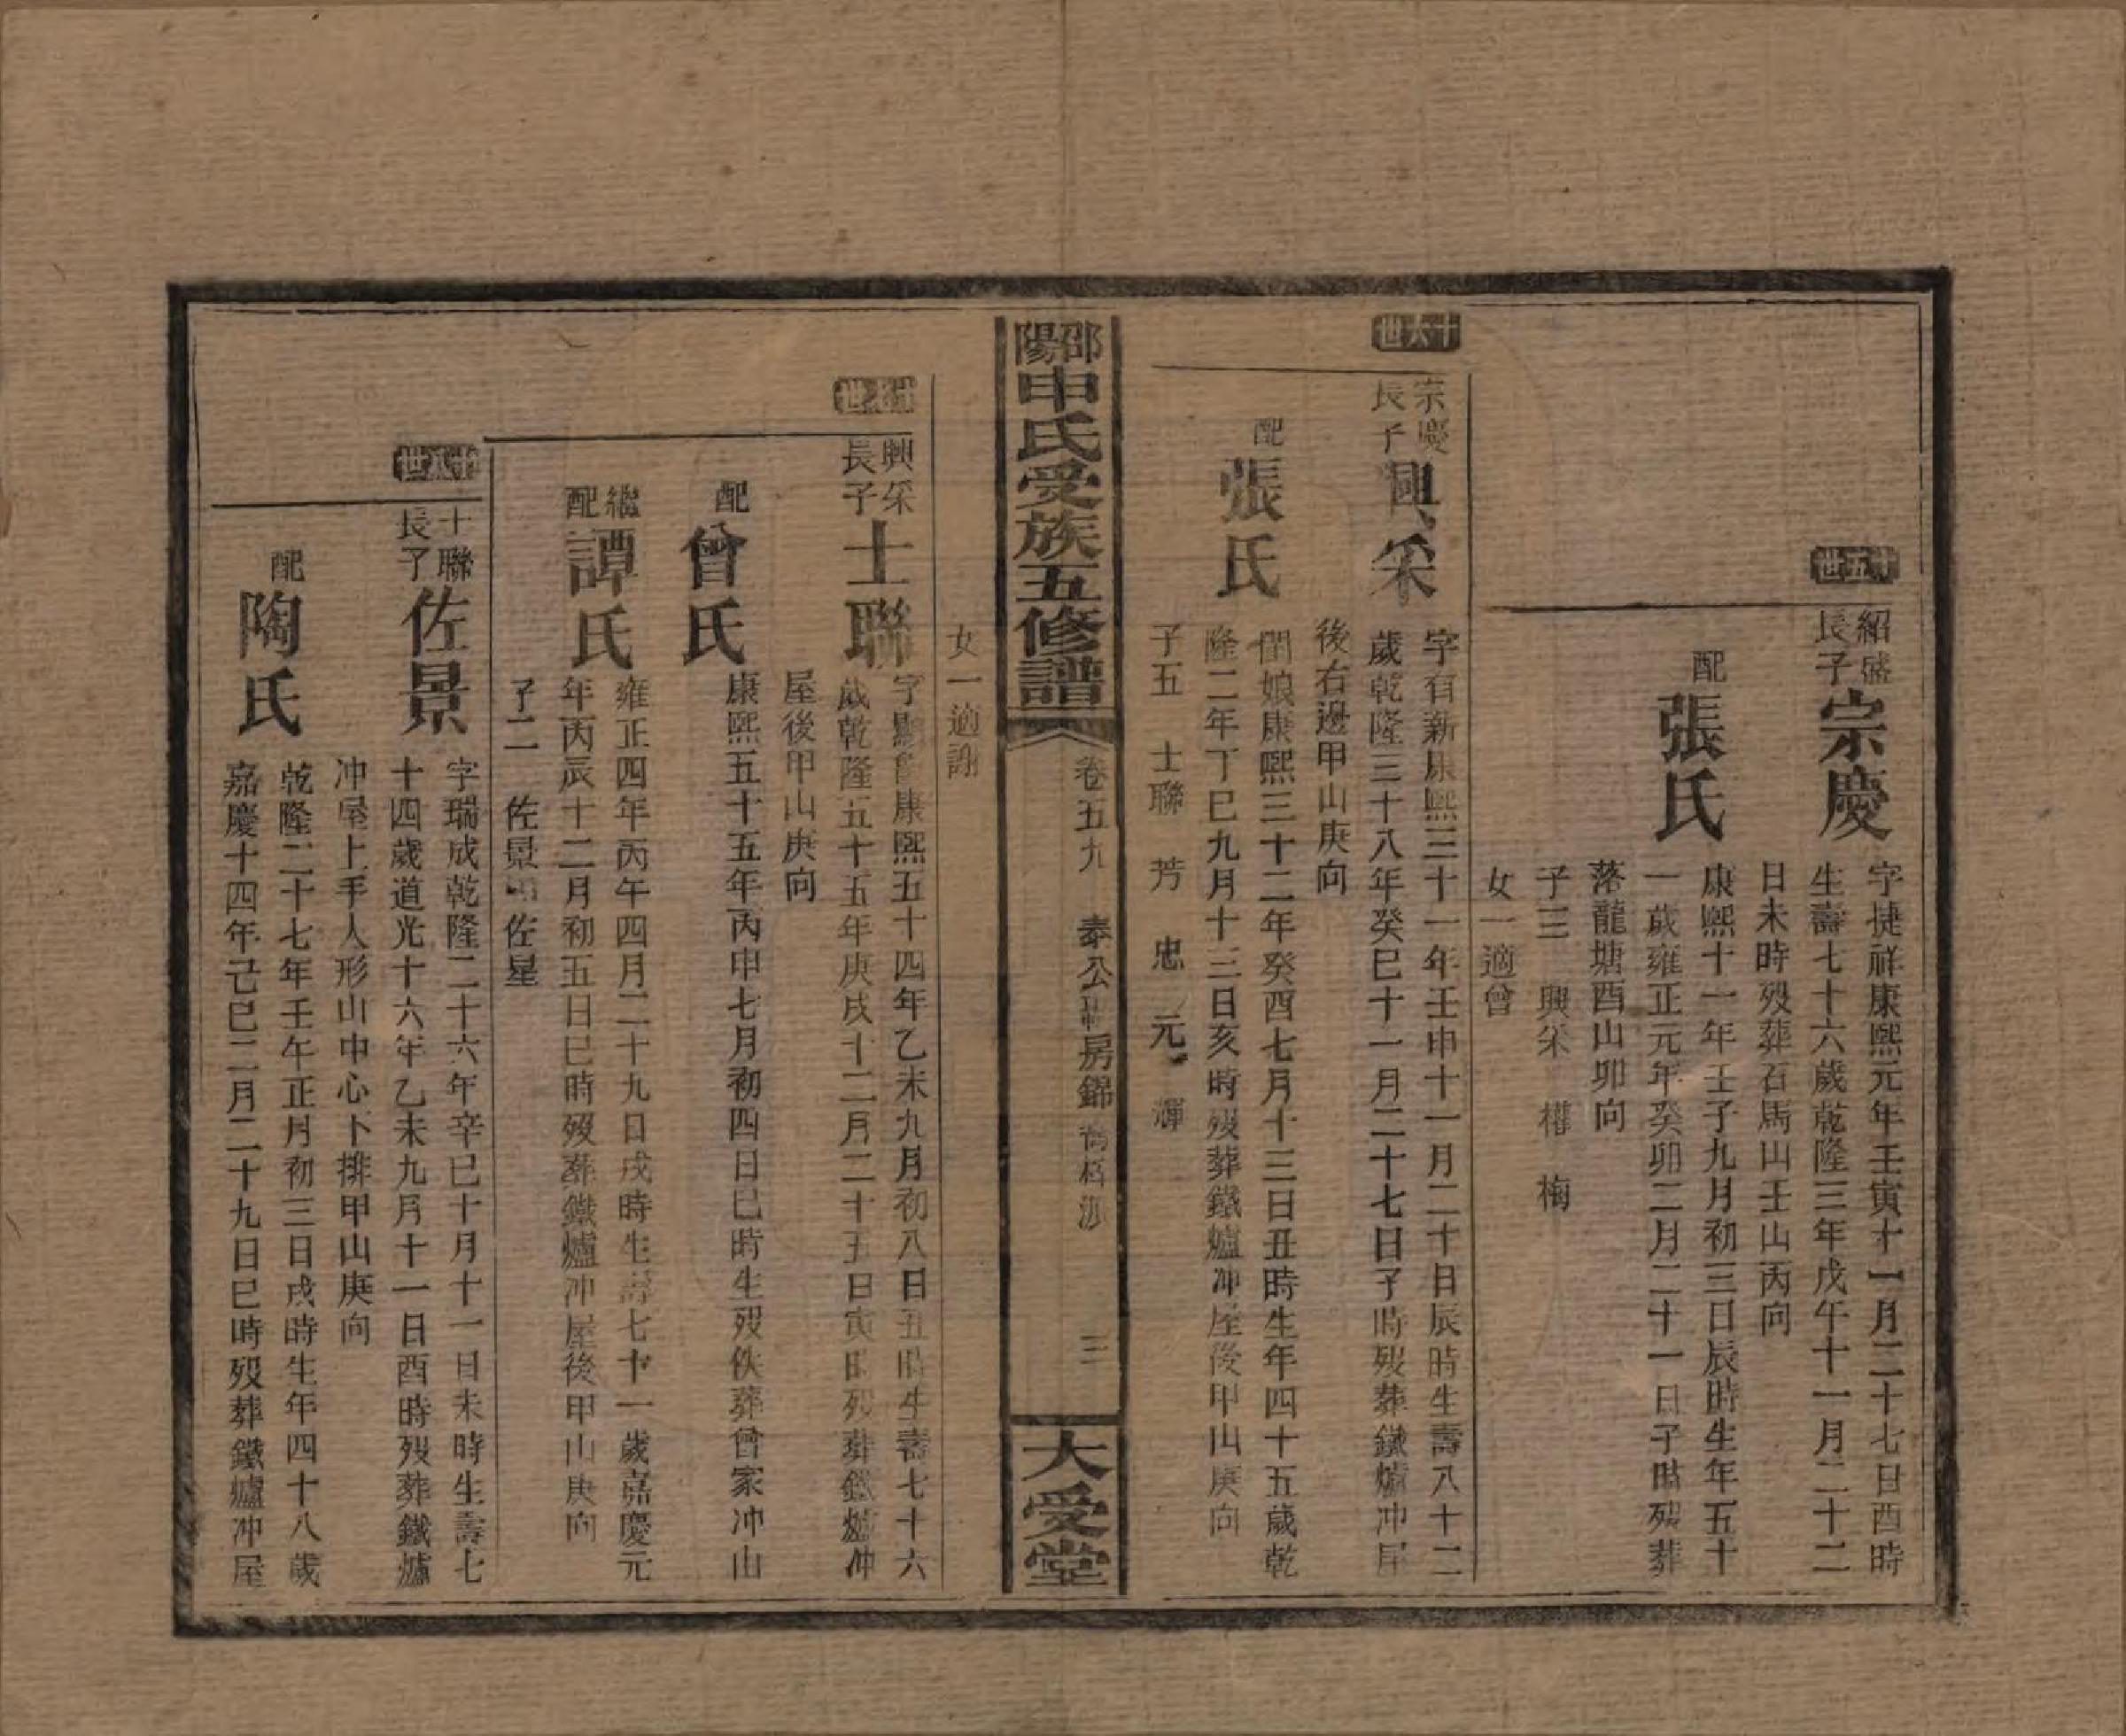 十五世
紹盛
長子
宗慶
字捷祥康熙元年壬寅十一月二十七日酉時
生壽七十六歲乾隆三年戊午十一月二十二
日未時歿葬石馬山壬山丙向
配
張氏
康熙十一年壬子九月初三日辰時生年五十
一歲雍正元年癸卯二月二十一日子時歿葬
落龍塘酉山卯向
子三 興采 權 梅
女一適曾
十六世
宗慶
長子
興采
字有新康熙三十一年壬申十一月二十日辰時生壽八十二
歲乾隆三十八年癸巳十一月二十七日子時歿葬鐵爐冲屋
後右邊甲山庚向
配
張氏
閏娘康熙三十二年癸酉七月十三日丑時生年四十五歲乾
隆二年丁巳九月十三日亥時歿葬鐵爐冲屋後甲山庚向
子五 士聯 芳 忠 元 輝
邵陽申氏受族五修譜
卷五九 泰公 房錦
三
大受堂
女一適謝
十七世
興采
長子
士聯
字 康熙五十四年乙未九月初八日丑時生壽七十六
歲乾隆五十五年庚戌十二月二十五日寅時歿葬鐵爐冲
屋後甲山庚向
配
曾氏
康熙五十五年丙申七月初四日巳時生歿佚葬曾家冲山
繼
配
譚氏
雍正四年丙午四月二十九日戌時生壽七十一歲嘉慶元
年丙辰十二月初五日巳時歿葬鐵爐冲屋後甲山庚向
子二 佐景 佐星
十八世
士聯
長子
佐景
字瑞成乾隆二十六年辛巳十月十一日未時生壽七
十四歲道光十六年乙未九月十一日酉時歿葬鐵爐
冲屋上手人形山中心卜排甲山庚向
配
陶氏
乾隆二十七年壬午正月初三日戌時生年四十八歲
嘉慶十四年己巳二月二十九日巳時歿葬鐵爐冲屋